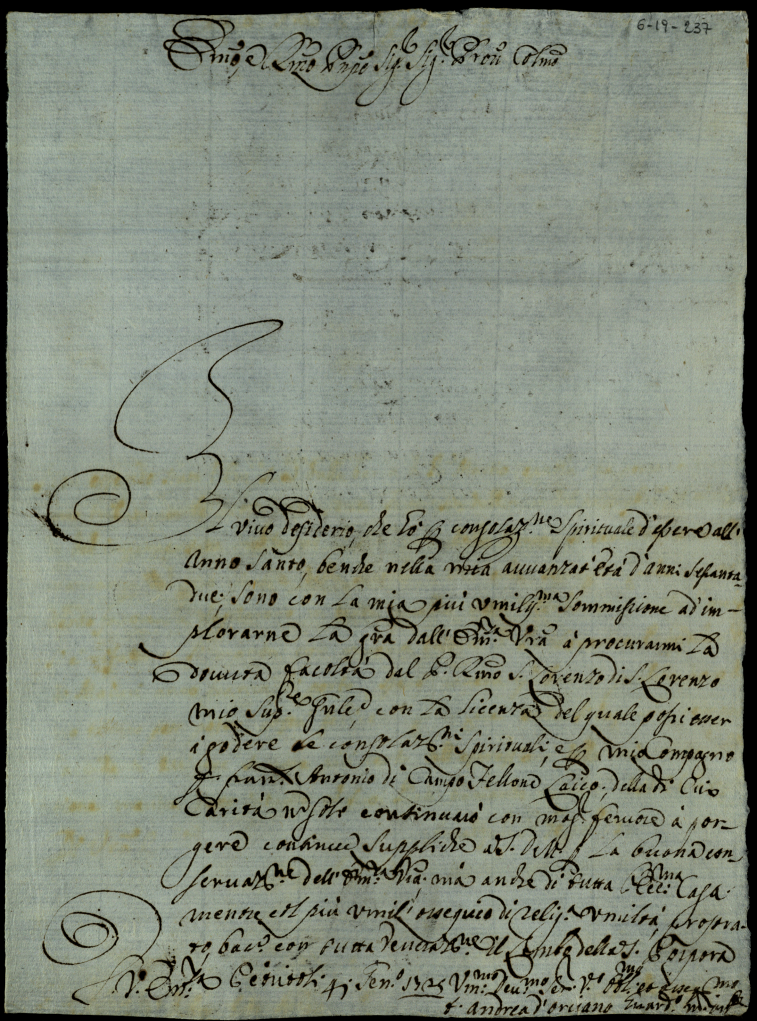 6-19-237
Em̃o, e Rm̃o Pñpe Sig.r Sig.r Proñ Colmo
Il vivo desiderio, che hò p consolaz.ne Spirituale d'essere all'
Anno Santo, benche nella mia avvanzat' età d'anni Sessanta
due; sono con la mia più umiliss.ma Sommissione ad im-
plorarne la gr̃a dall' Em.za Vr̃a à procurarmi la
dovuta facoltà dal P. Rm̃o S. Lorenzo di S. Lorenzo
mio Sup.re Gñle con la licenza del quale possi esser
à godere le consolaz.ni Spirituali, e p mio Compagno
fr. Antonio di Campo Laico, della di cui
Carità nõ solo continuarò con mag.r fervore à por-
gere continue suppliche à S. D. M. p la buona con
servaz.ne dell' Em.za Vr̃a. mà anche di tutta l'Ecc.ma Casa
mentre col più umil' ossequio di relig.a umiltà prostra-
to, bacio con tutta veneraz.ne il Lembo della S. Porpora
V.a Em.za 4 Gen.o 1725 Um.mo Dev.mo et
f. Andrea d'Orciano Guard.o